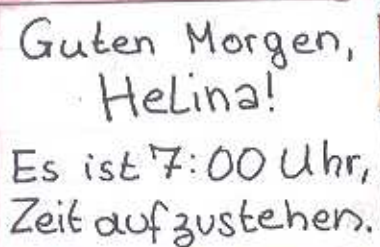 Guten Morgen,
Helina!
Es ist 7:00 Uhr,
Zeit aufzustehen.